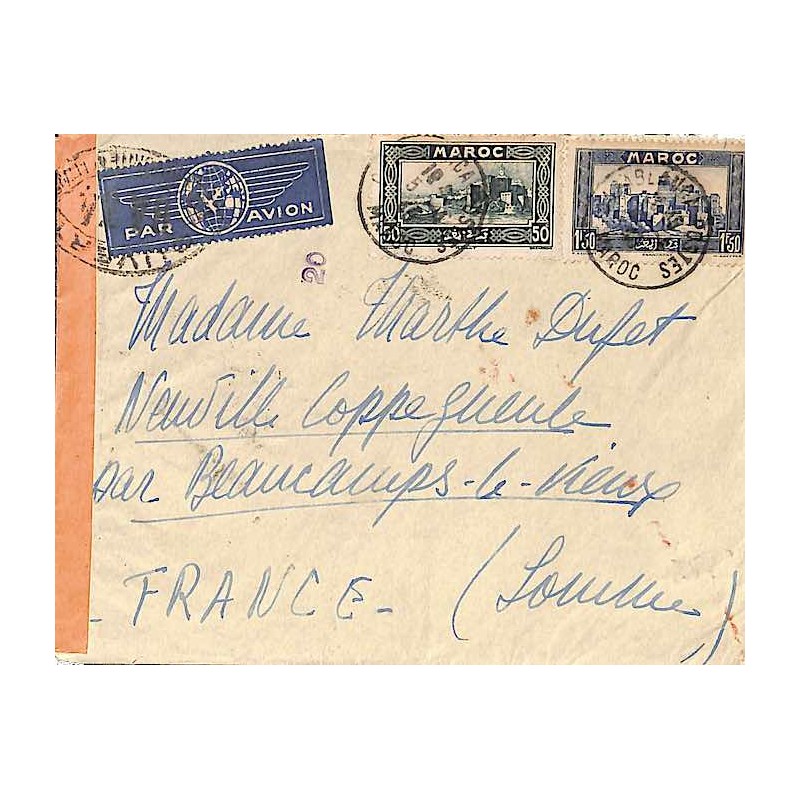 PAR AVION
MAROC
50 50
MAROC
1F50 1F50
20
Madame Marthe Dufet
Neuville Coppegueule
par Beaucamps-le-Vieux
- FRANCE - (Somme)